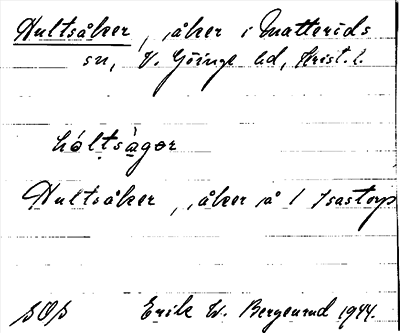 Hultsåker, åker i Matteröds
sn, V. Göinge hd, Krist. l.
hóltsàgor
Hultsåker, åker å 1 Isastorp
SOS Erik W. Bergenrud 1944.